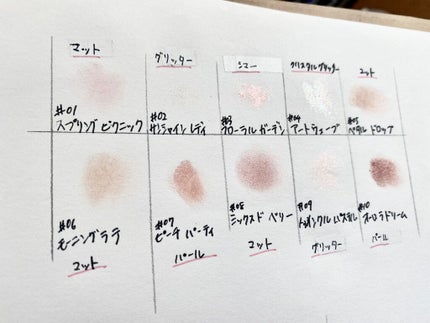 マット
グリッター
シマー
クリスタルグリッター
マット
#01
スプリング ピクニック
#02
サンシャイン レディ
#3
フローラル ガーデン
#04
アートウェーブ
#05
ペタル ドロップ
#06
モーニングラテ
マット
#07
ピーチ パーティ
パール
#08
ミックスド ベリー
マット
#09
トゥインクル パステル
グリッター
#10
オーロラドリーム
パール